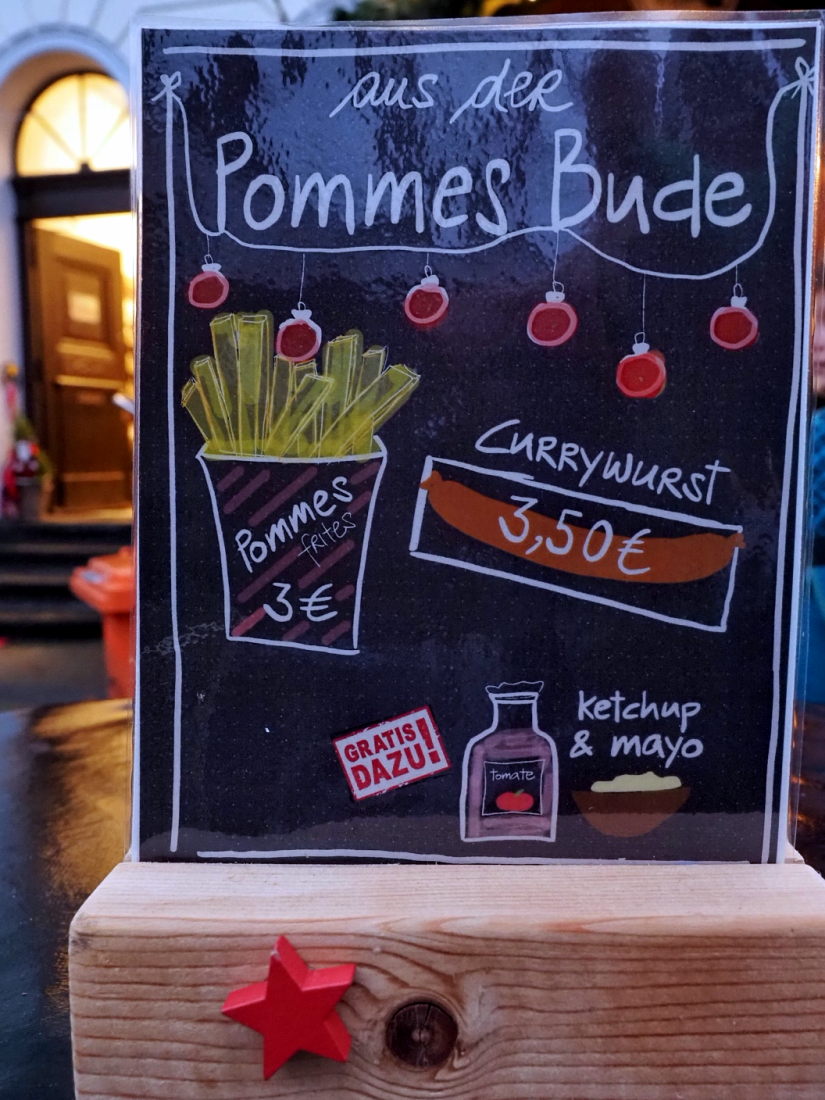 aus der
Pommes Bude
CURRYWURST
3,50€
Pommes
frites
3€
ketchup
& mayo
GRATIS
DAZU!
tomate